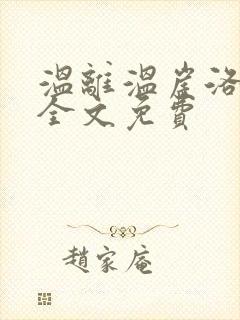 溫離溫崖洛
全文免費
趙家庵